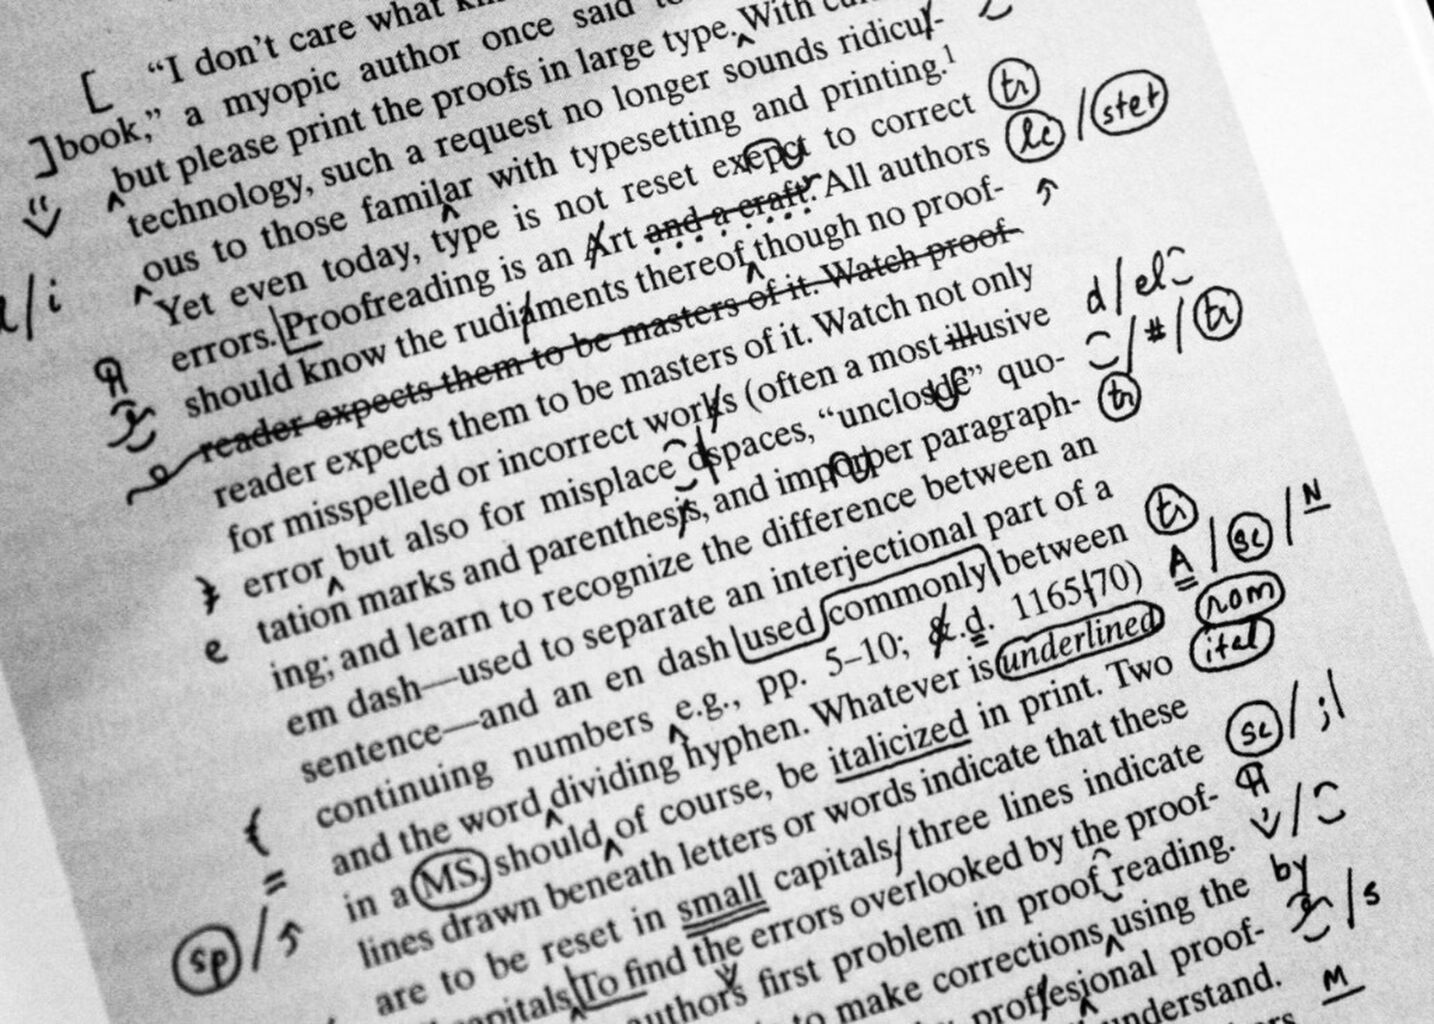 “I don’t care what
book,” a myopic author once said
but please print the proofs in large type. With
technology, such a request no longer sounds ridicul-
ous to those familar with typesetting and printing.1
Yet even today, type is not reset exepct to correct tr
errors. Proofreading is an Art and a craft. All authors lc / stet
should know the rudiaments thereof though no proof-
reader expects them to be masters of it. Watch proof-
reader expects them to be masters of it. Watch not only
for misspelled or incorrect works (often a most illusive d / el
error but also for misplace dspaces, “unclosde” quo- / # / tr
tation marks and parenthesis, and imporper paragraph- tr
ing; and learn to recognize the difference between an
em dash—used to separate an interjectional part of a
sentence—and an en dash used commonly between tr
continuing numbers e.g., pp. 5–10; &.d. 1165/70) A / sc / N
and the word dividing hyphen. Whatever is underlined rom
in a MS. should of course, be italicized in print. Two ital
lines drawn beneath letters or words indicate that these
are to be reset in small capitals/three lines indicate sc / ;/
capitals. To find the errors overlooked by the proof-
authors first problem in proof reading.
to make corrections using the by
proffesional proof- / s
understand.
M
/ i
e
=
sp /